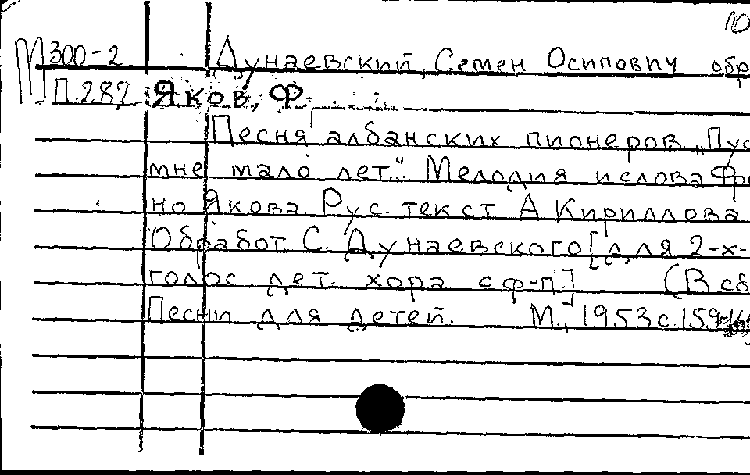 10
М300-2 Дунаевский, Семен Осипович обр
П.282 Яков, Ф.
Песня албанских пионеров „Пус
мне мало лет." Мелодия и слова Фре
но Якова Рус. текст А Кириллова
Обработ С. Дунаевского [для 2-х-
голос дет. хора с ф-п.] (В сб
Песни для детей. М., 1953 с.159-